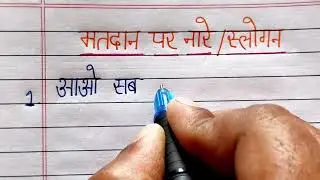 मतदान पर नारे/स्लोगन
1 आओ सब